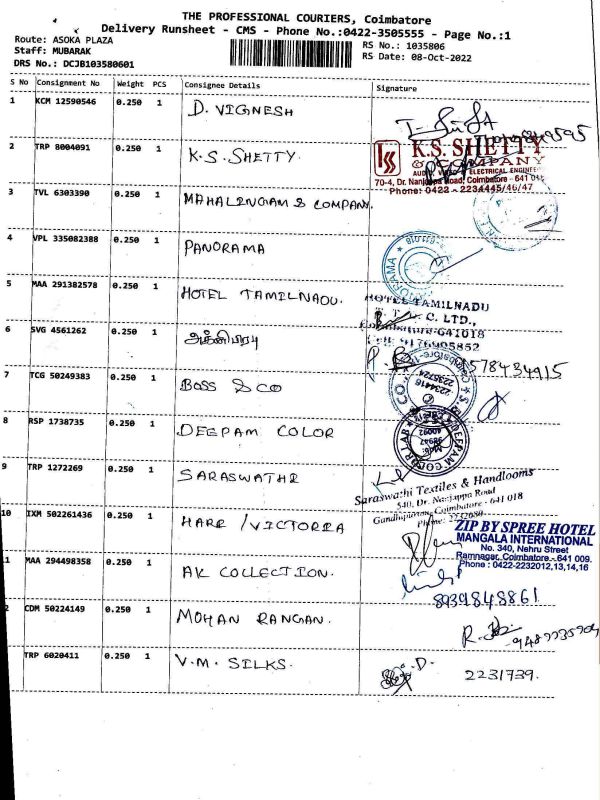 THE PROFESSIONAL COURIERS, Coimbatore
Delivery Runsheet - CMS - Phone No.:0422-3505555 - Page No.:1
Route: ASOKA PLAZA
Staff: MUBARAK
DRS No.: DCJB103580601
RS No.: 1035806
RS Date: 08-Oct-2022
S No Consignment No Weight PCS Consignee Details Signature
1 KCM 12590546 0.250 1 D. VIGNESH
2 TRP 8004091 0.250 1 K.S. SHETTY
K.S. SHETTY
& COMPANY
70-4, Dr. Nanjappa Road, Coimbatore - 641 018
Phone: 0422 - 2234445/46/47
3 TVL 6303390 0.250 1 MAHALINGAM & COMPANY.
4 VPL 335082388 0.250 1 PANORAMA
PANORAMA
5 MAA 291382578 0.250 1 HOTEL TAMILNADU.
HOTEL TAMILNADU
C. LTD.,
6 SVG 4561262 0.250 1
7 TCG 50249383 0.250 1 BOSS & CO
2234416
2235724
8 RSP 1738735 0.250 1 DEEPAM COLOR
DEEPAM COLOR LAB
9 TRP 1272269 0.250 1 SARASWATHI
Saraswathi Textiles & Handlooms
540, Dr. Nanjappa Road
Gandhipuram, Coimbatore - 641 018
10 IXM 502261436 0.250 1 HARE / VICTORIA
ZIP BY SPREE HOTEL
MANGALA INTERNATIONAL
No. 340, Nehru Street
Ramnagar, Coimbatore - 641 009.
Phone : 0422-2232012,13,14,16
MAA 294498358 0.250 1 AK COLLECTION.
8939848861
CDM 50224149 0.250 1 MOHAN RANGAN.
TRP 6020411 0.250 1 V.M. SILKS.
2231739.